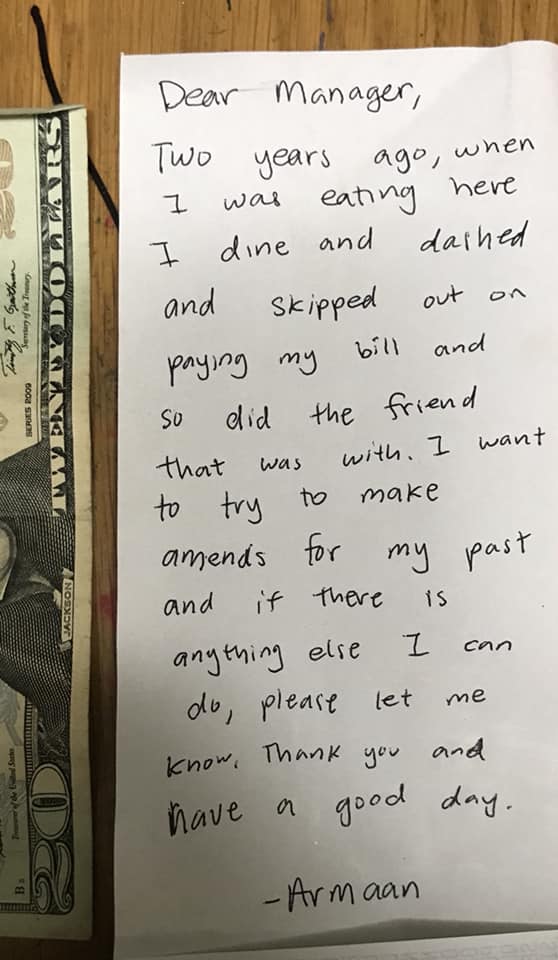 Dear Manager,
Two years ago, when
I was eating here
I dine and dashed
and skipped out on
paying my bill and
so did the friend
that was with. I want
to try to make
amends for my past
and if there is
anything else I can
do, please let me
know. Thank you and
have a good day.
-Armaan
TWENTY DOLLARS
Secretary of the Treasury.
SERIES 2009
JACKSON
Treasurer of the United States
20
20